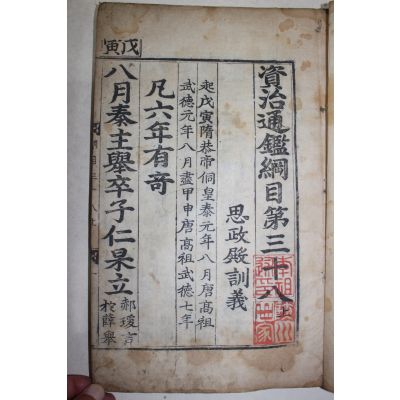 資治通鑑綱目第三十八上
思政殿訓義
起戊寅隋恭帝侗皇泰元年八月唐高祖
武德元年八月盡甲申唐高祖武德七年
凡六年有奇
戊寅
八月秦主舉卒子仁杲立
郝瑗言
於薛舉